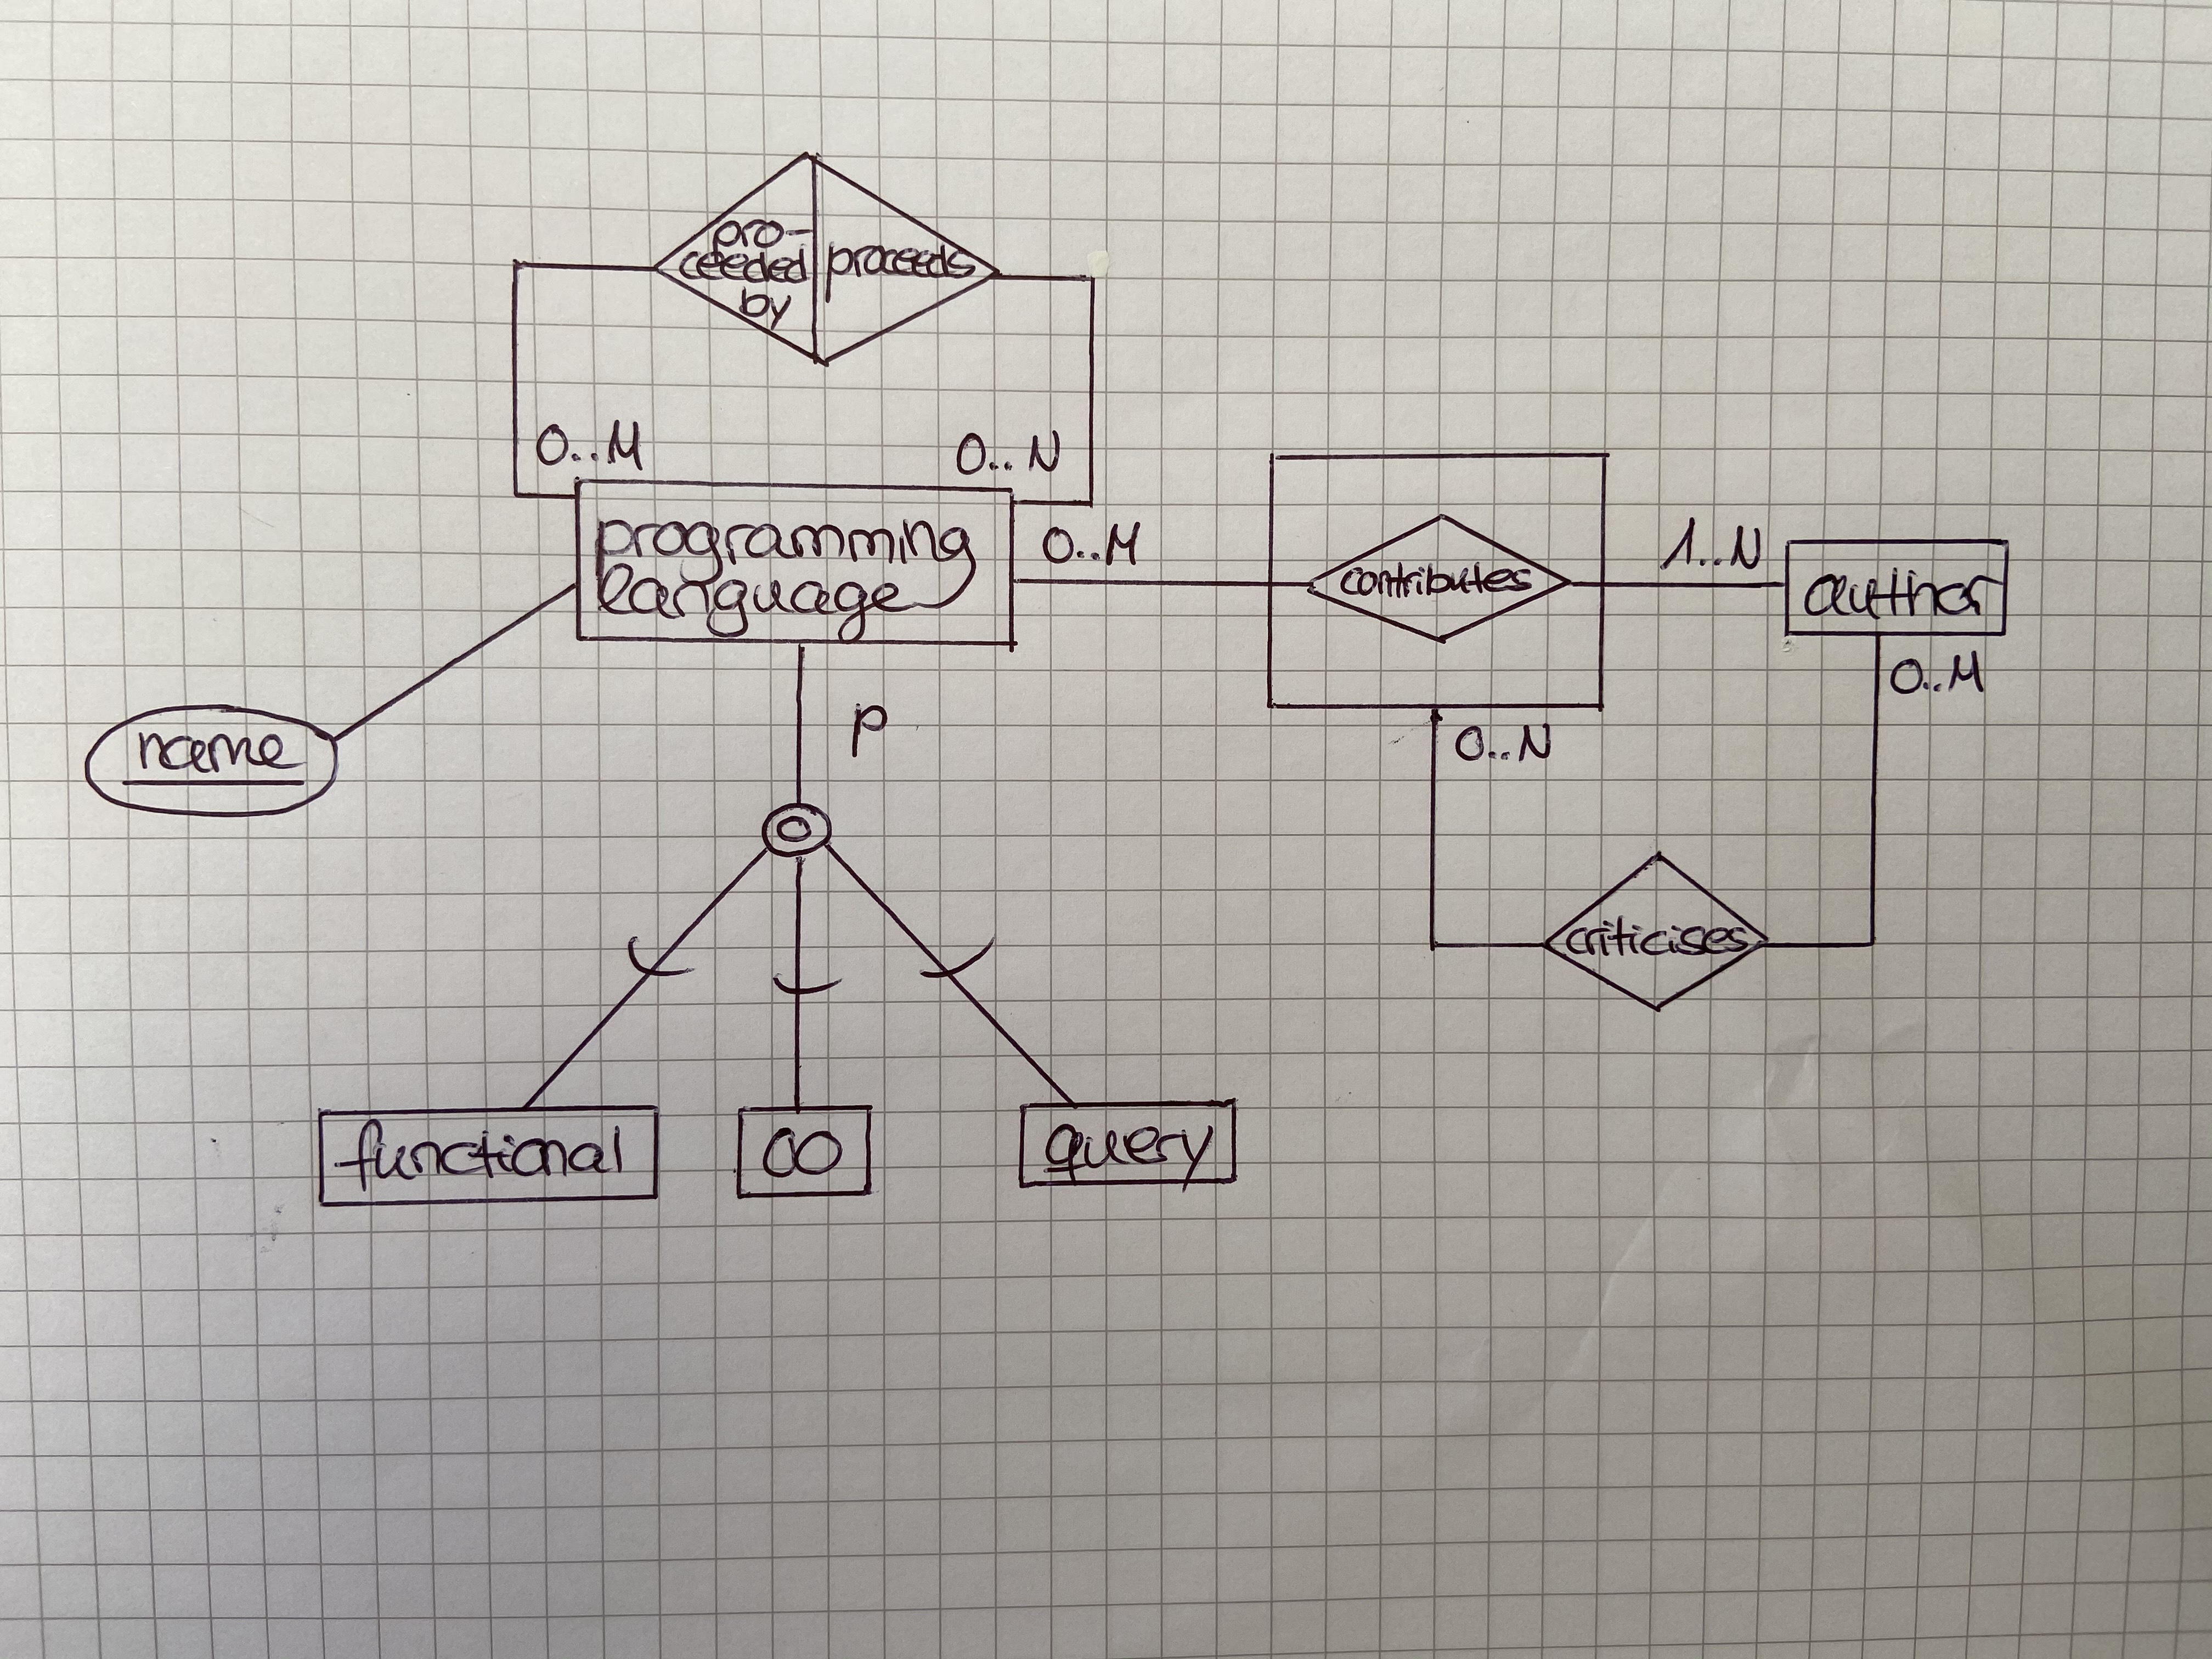 pro-
ceeded
by
proceeds
0..M
0..N
programming
language
0..M
contributes
1..N
author
0..M
name
P
0..N
criticises
O
functional
OO
query